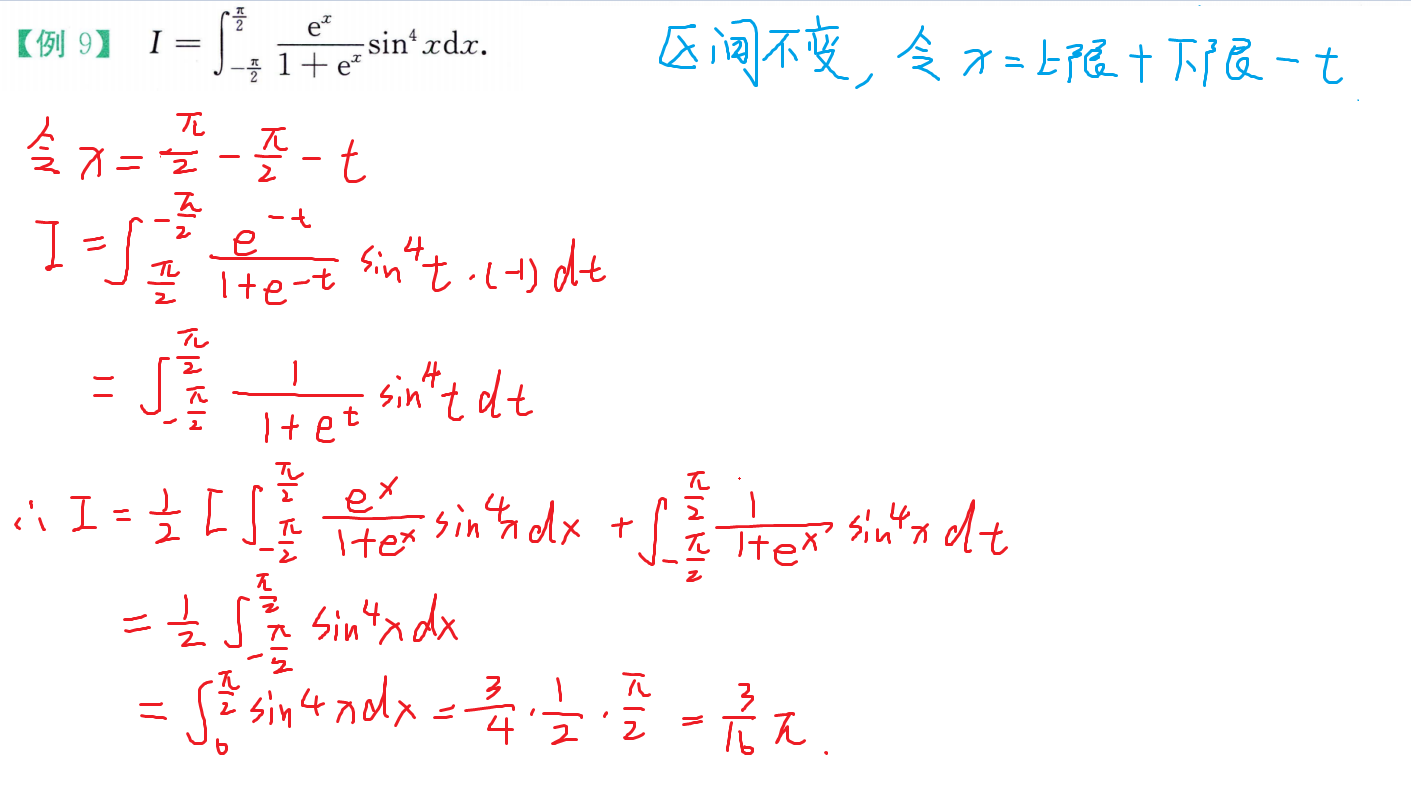 【例 9】 I = ∫_{-π/2}^{π/2} e^x/(1+e^x) sin^4 x dx.
区间不变, 令 x = 上限 + 下限 - t
令 x = π/2 - π/2 - t
I = ∫_{π/2}^{-π/2} e^{-t}/(1+e^{-t}) sin^4 t · (-1) dt
= ∫_{-π/2}^{π/2} 1/(1+e^t) sin^4 t dt
∴ I = 1/2 [ ∫_{-π/2}^{π/2} e^x/(1+e^x) sin^4 x dx + ∫_{-π/2}^{π/2} 1/(1+e^x) sin^4 x dt
= 1/2 ∫_{-π/2}^{π/2} sin^4 x dx
= ∫_0^{π/2} sin 4 x dx = 3/4 · 1/2 · π/2 = 3/16 π.